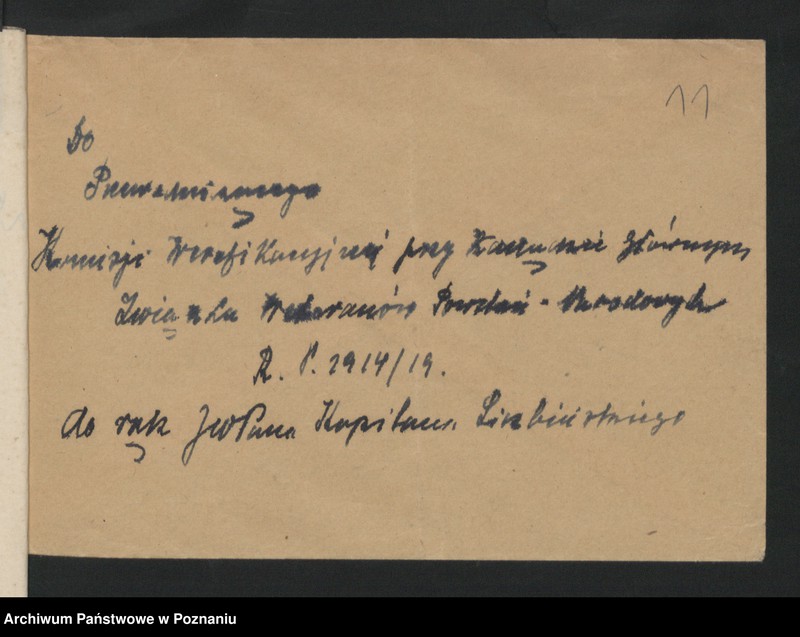 11
Do
Przewodniczącego
Komisji Weryfikacyjnej przy Zarządzie Głównym
Związku Weteranów Powstań Narodowych
R. P. 1914/19.
do rąk JWPana Kapitana
Archiwum Państwowe w Poznaniu